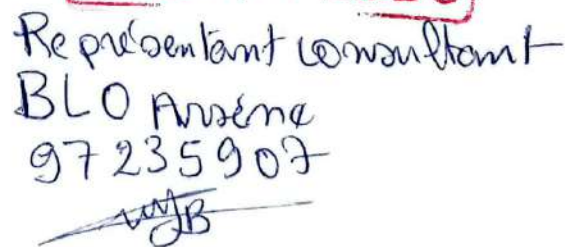 Représentant consultant
BLO Arsène
97235907